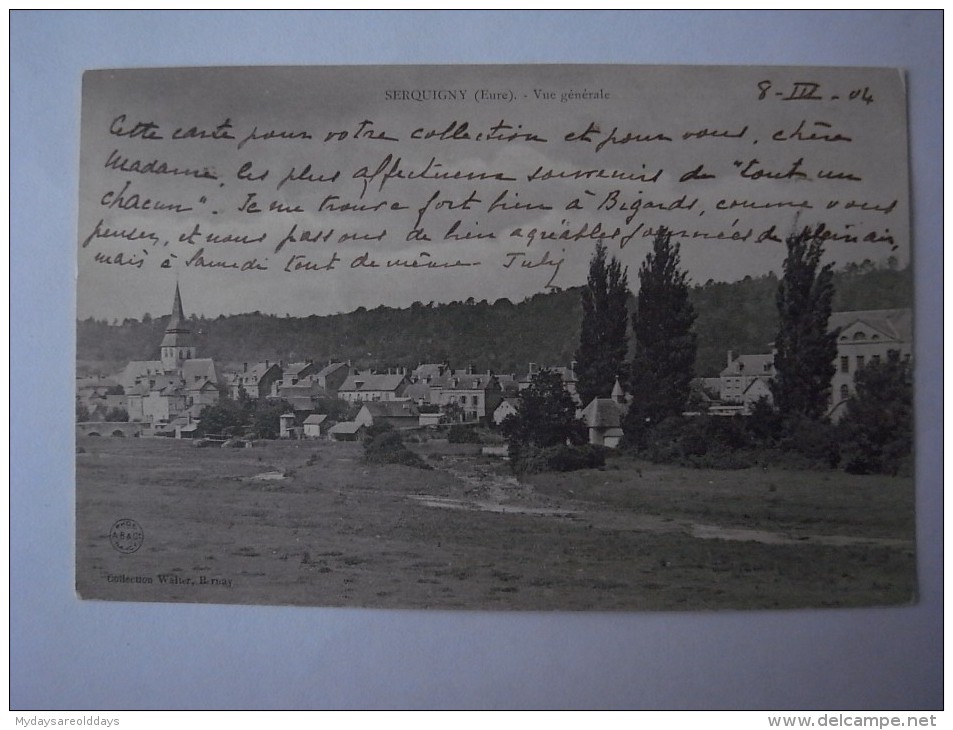 SERQUIGNY (Eure). - Vue générale
8-III-04
Cette carte pour votre collection et pour vous, chère
Madame, les plus affectueux souvenirs de "tout un
chacun". Je me trouve fort bien à Bigards, comme vous
pensez, et nous passons de bien agréables journées de plein air,
mais à Samedi tout de même.
Collection Walter, Bernay
Mydaysareolddays
www.delcampe.net